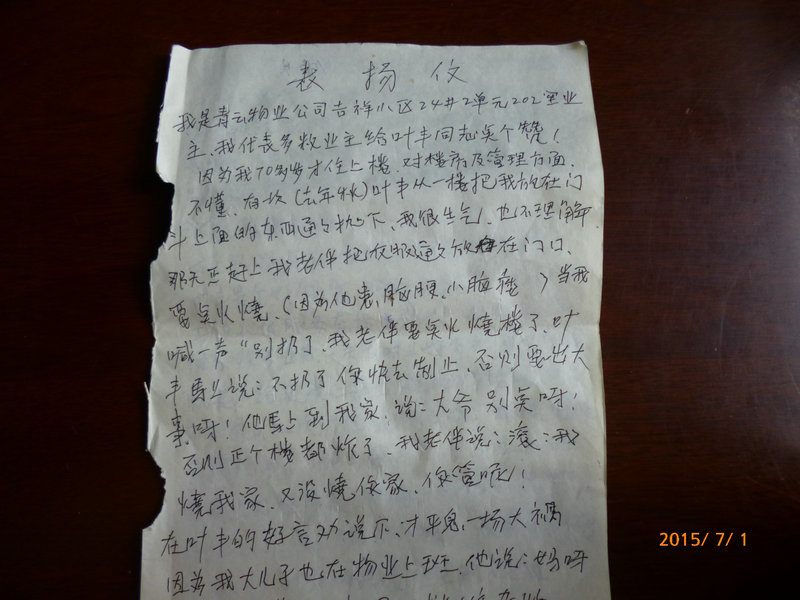 表扬仪
我是青云物业公司吉祥小区24#2单元202室业
主、我代表多数业主给叶丰同志点个赞！
因为我70多岁才住上楼、对楼房及管理方面、
不懂、有次（去年秋）叶丰从一楼把我放在门
斗上面的东西通通扔下、我很生气、也不理解、
那天正赶上我老伴把衣服通通放在门口、
要点火烧、（因为他患脑腹、小脑）当我
喊一声“别扔了、我老伴要点火烧楼了、叶
丰马上说：不扔了你快去制止、否则要出大
事呀！他马上到我家、说：大爷别点呀！
否则正个楼都炸了、我老伴说：滚：我
烧我家、又没烧你家、你管呢！
在叶丰的好言劝说下、才平息一场大祸
因为我大儿子也在物业上班、他说：妈呀
2015/ 7/ 1